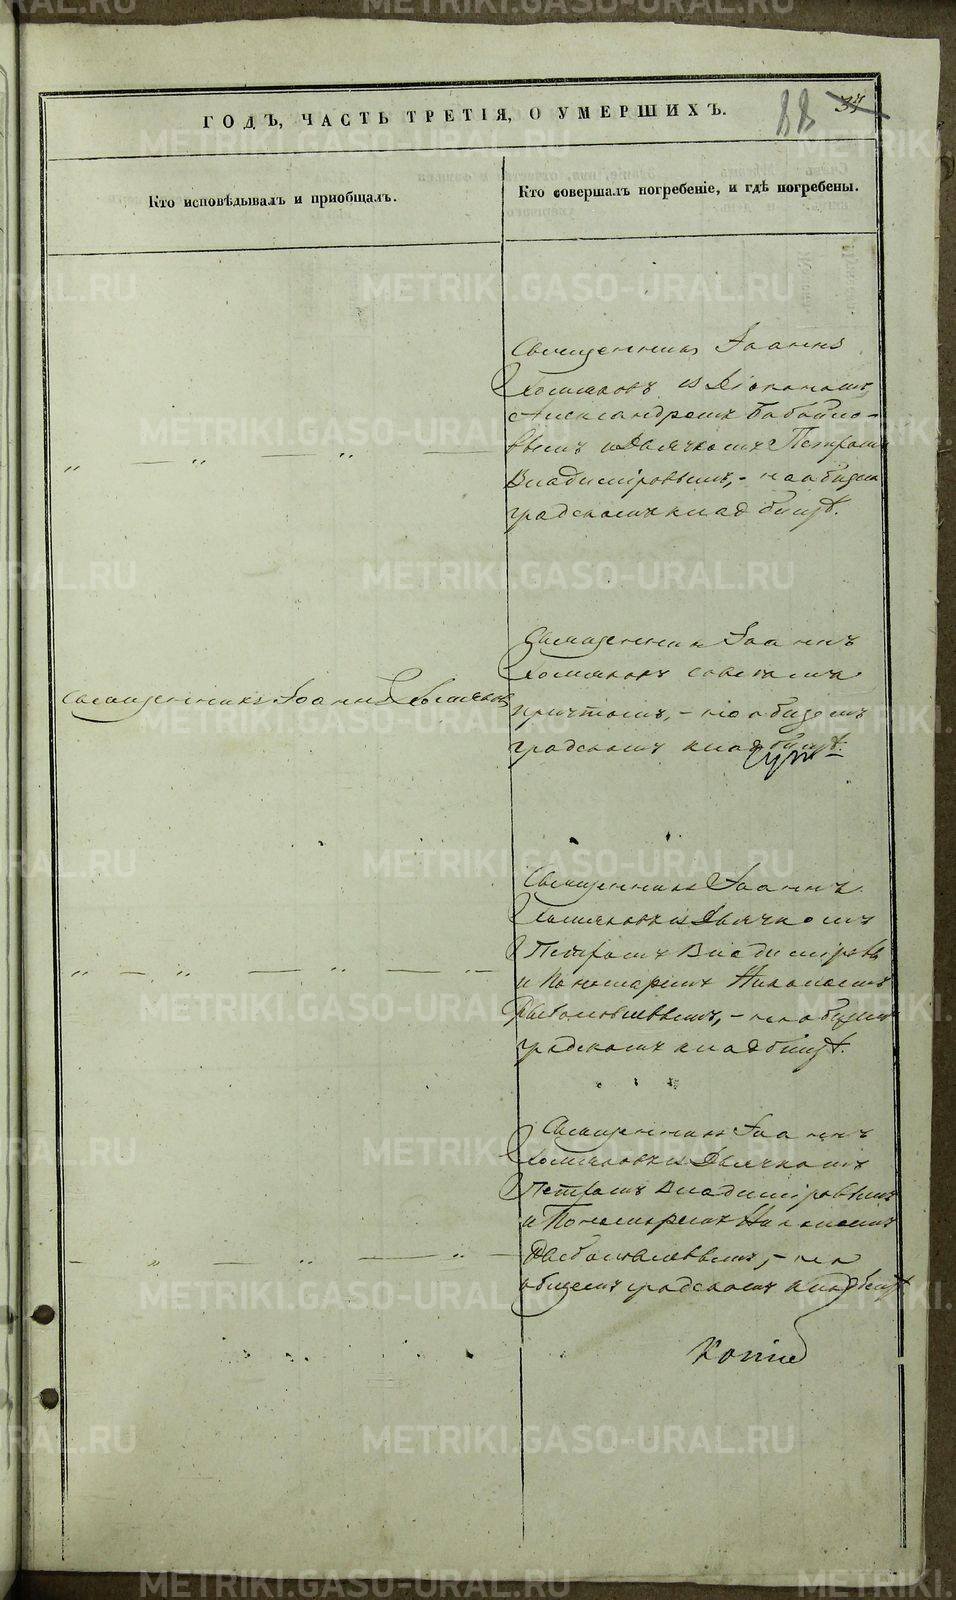 ГОДЪ, ЧАСТЬ ТРЕТІЯ, О УМЕРШИХЪ.
88 37
Кто исповѣдывалъ и приобщалъ.
Кто совершалъ погребеніе, и гдѣ погребены.
Священникъ Іоаннъ
Хомяковъ съ Діакономъ
Александромъ
и Дьячкомъ Петромъ
Владиміровымъ, - на общемъ
градскомъ кладбищѣ.
Священникъ Іоаннъ Хомяковъ
Священникъ Іоаннъ
Хомяковъ со всѣмъ
причтомъ, - на общемъ
градскомъ кладбищѣ.
Священникъ Іоаннъ
Хомяковъ съ Дьячкомъ
Петромъ Владиміровы
и Пономаремъ Николаемъ
- на общемъ
градскомъ кладбищѣ.
Священникъ Іоаннъ
Хомяковъ съ Дьячкомъ
Петромъ Владиміровымъ
и Пономаремъ Николаемъ
- на
общемъ градскомъ кладбищѣ
METRIKI.GASO-URAL.RU